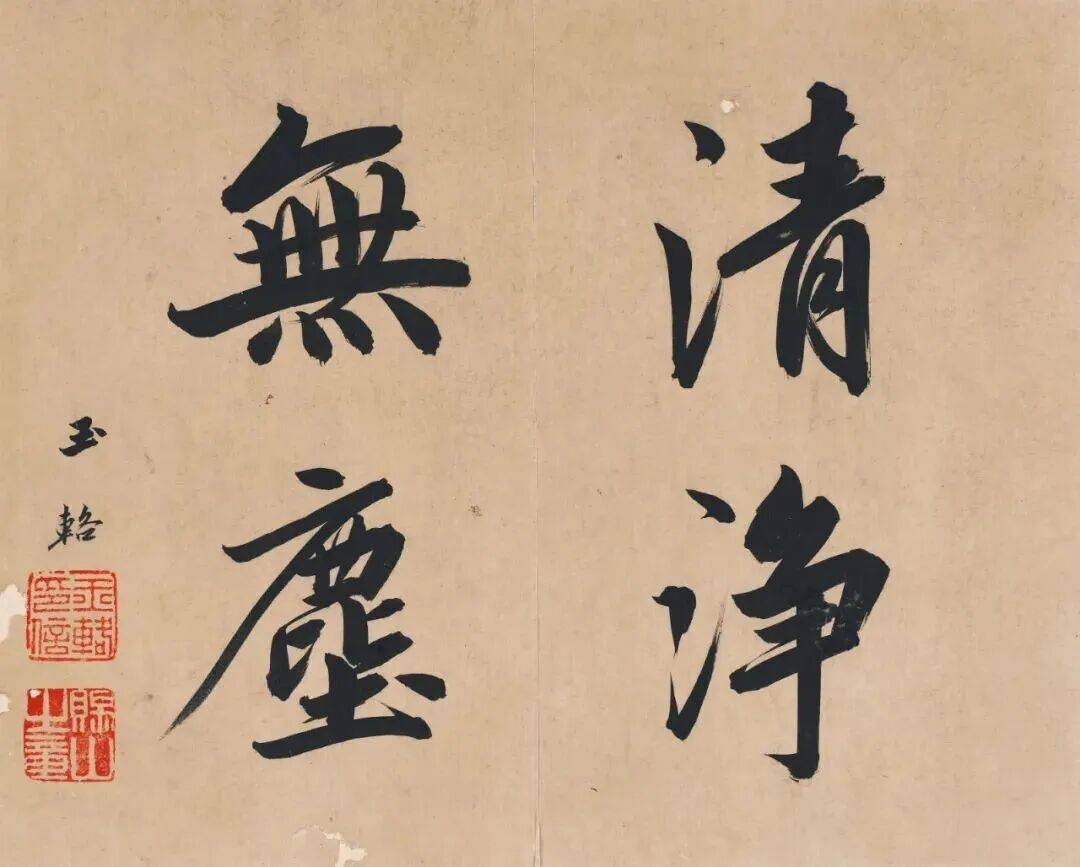 清淨
無塵
玉輅